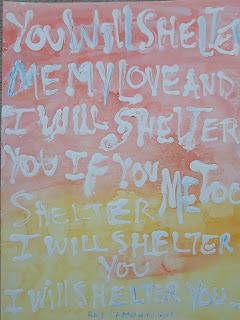 YOU WILL SHELTER
ME MY LOVE AND
I WILL SHELTER
YOU IF YOU
SHELTER ME TOO
I WILL SHELTER
YOU
I WILL SHELTER YOU
RAY LAMONTAGNE